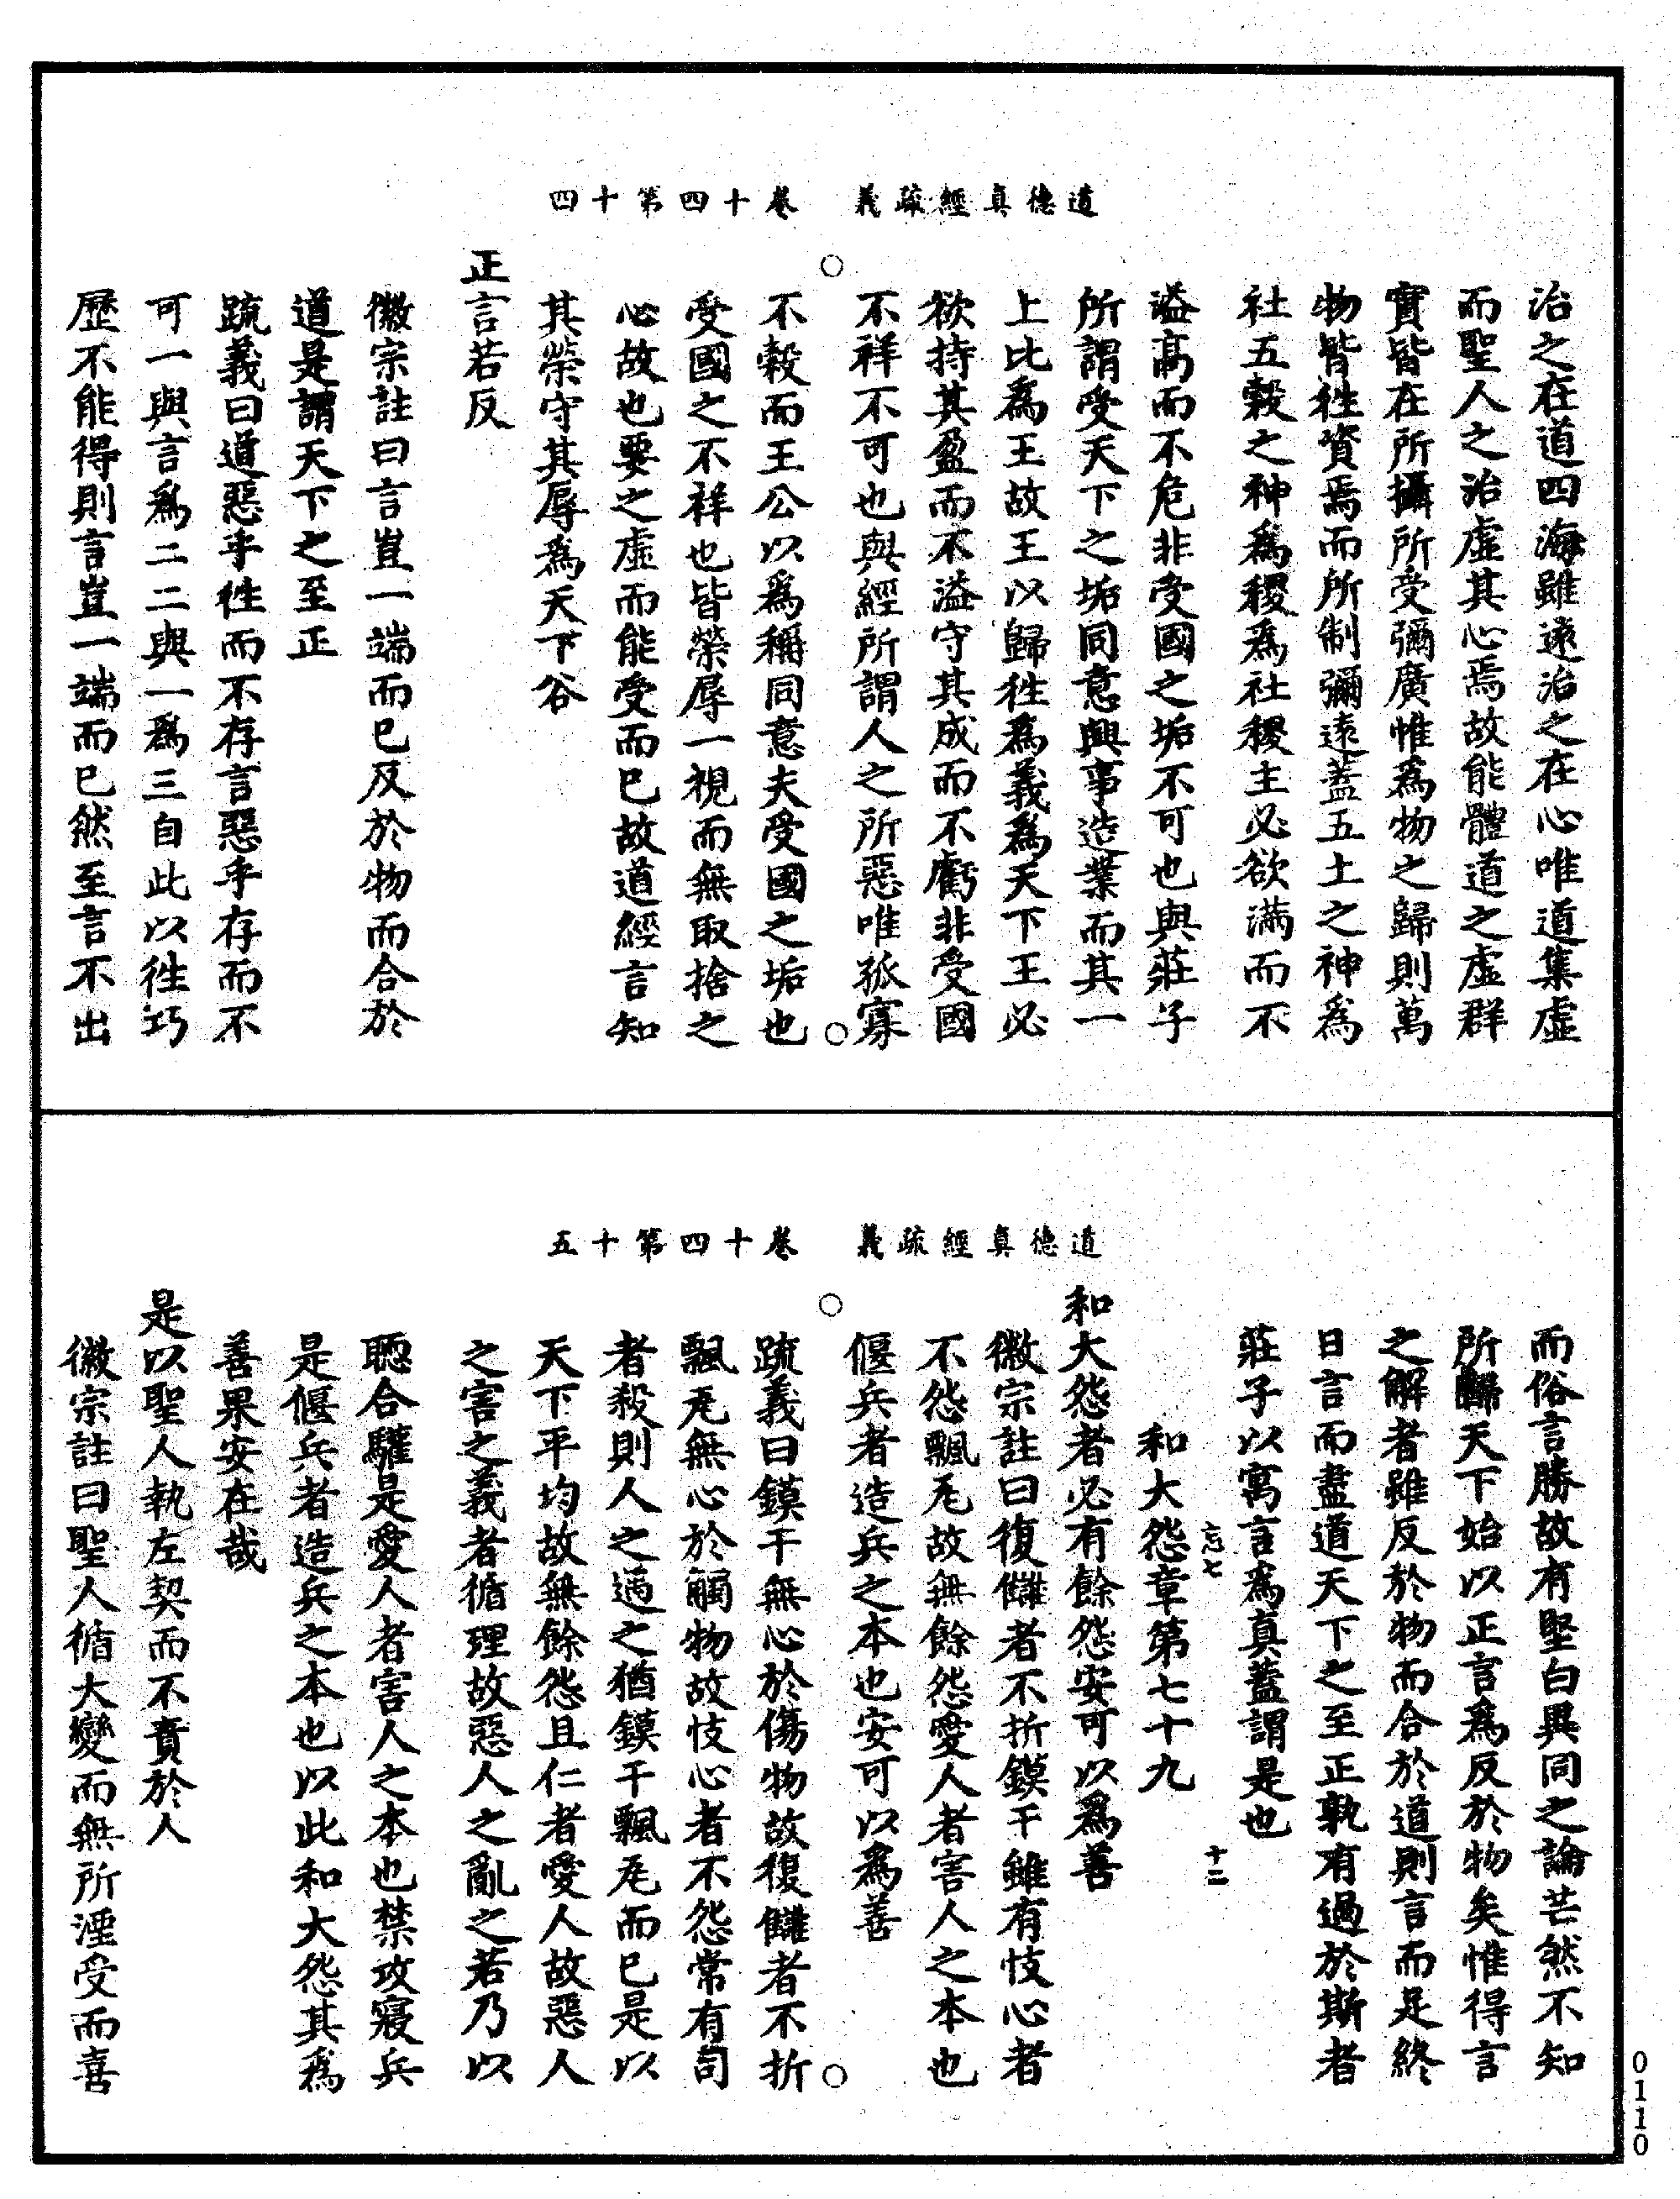 道德真經疏義　卷十四第十四
治之在道四海雖遠治之在心唯道集虛
而聖人之治虛其心焉故能體道之虛群
實皆在所攝所受彌廣惟為物之歸則萬
物皆徃資焉而所制彌遠蓋五土之神為
社五穀之神為稷為社稷主必欲滿而不
溢高而不危非受國之垢不可也與莊子
所謂受天下之垢同意與事造業而其一
上比為王故王以歸徃為義為天下王必
欲持其盈而不溢守其成而不虧非受國
不祥不可也與經所謂人之所惡唯孤寡
不穀而王公以為稱同意夫受國之垢也
受國之不祥也皆榮辱一視而無取捨之
心故也要之虛而能受而已故道經言知
其榮守其辱為天下谷
正言若反
徽宗註曰言豈一端而已反於物而合於
道是謂天下之至正
疏義曰道惡乎徃而不存言惡乎存而不
可一與言為二二與一為三自此以徃巧
歷不能得則言豈一端而已然至言不出
道德真經疏義　卷十四第十五
而俗言勝故有堅白異同之論芒然不知
所歸天下始以正言為反於物矣惟得言
之解者雖反於物而合於道則言而足終
日言而盡道天下之至正孰有過於斯者
莊子以寓言為真蓋謂是也
忘七　十二
和大怨章第七十九
和大怨者必有餘怨安可以為善
徽宗註曰復讎者不折鏌干雖有忮心者
不怨飄瓦故無餘怨愛人者害人之本也
偃兵者造兵之本也安可以為善
疏義曰鏌干無心於傷物故復讎者不折
飄瓦無心於觸物故忮心者不怨常有司
者殺則人之遇之猶鏌干飄瓦而已是以
天下平均故無餘怨且仁者愛人故惡人
之害之義者循理故惡人之亂之若乃以
聰合驩是愛人者害人之本也禁攻寢兵
是偃兵者造兵之本也以此和大怨其為
善果安在哉
是以聖人執左契而不責於人
徽宗註曰聖人循大變而無所湮受而喜
0110